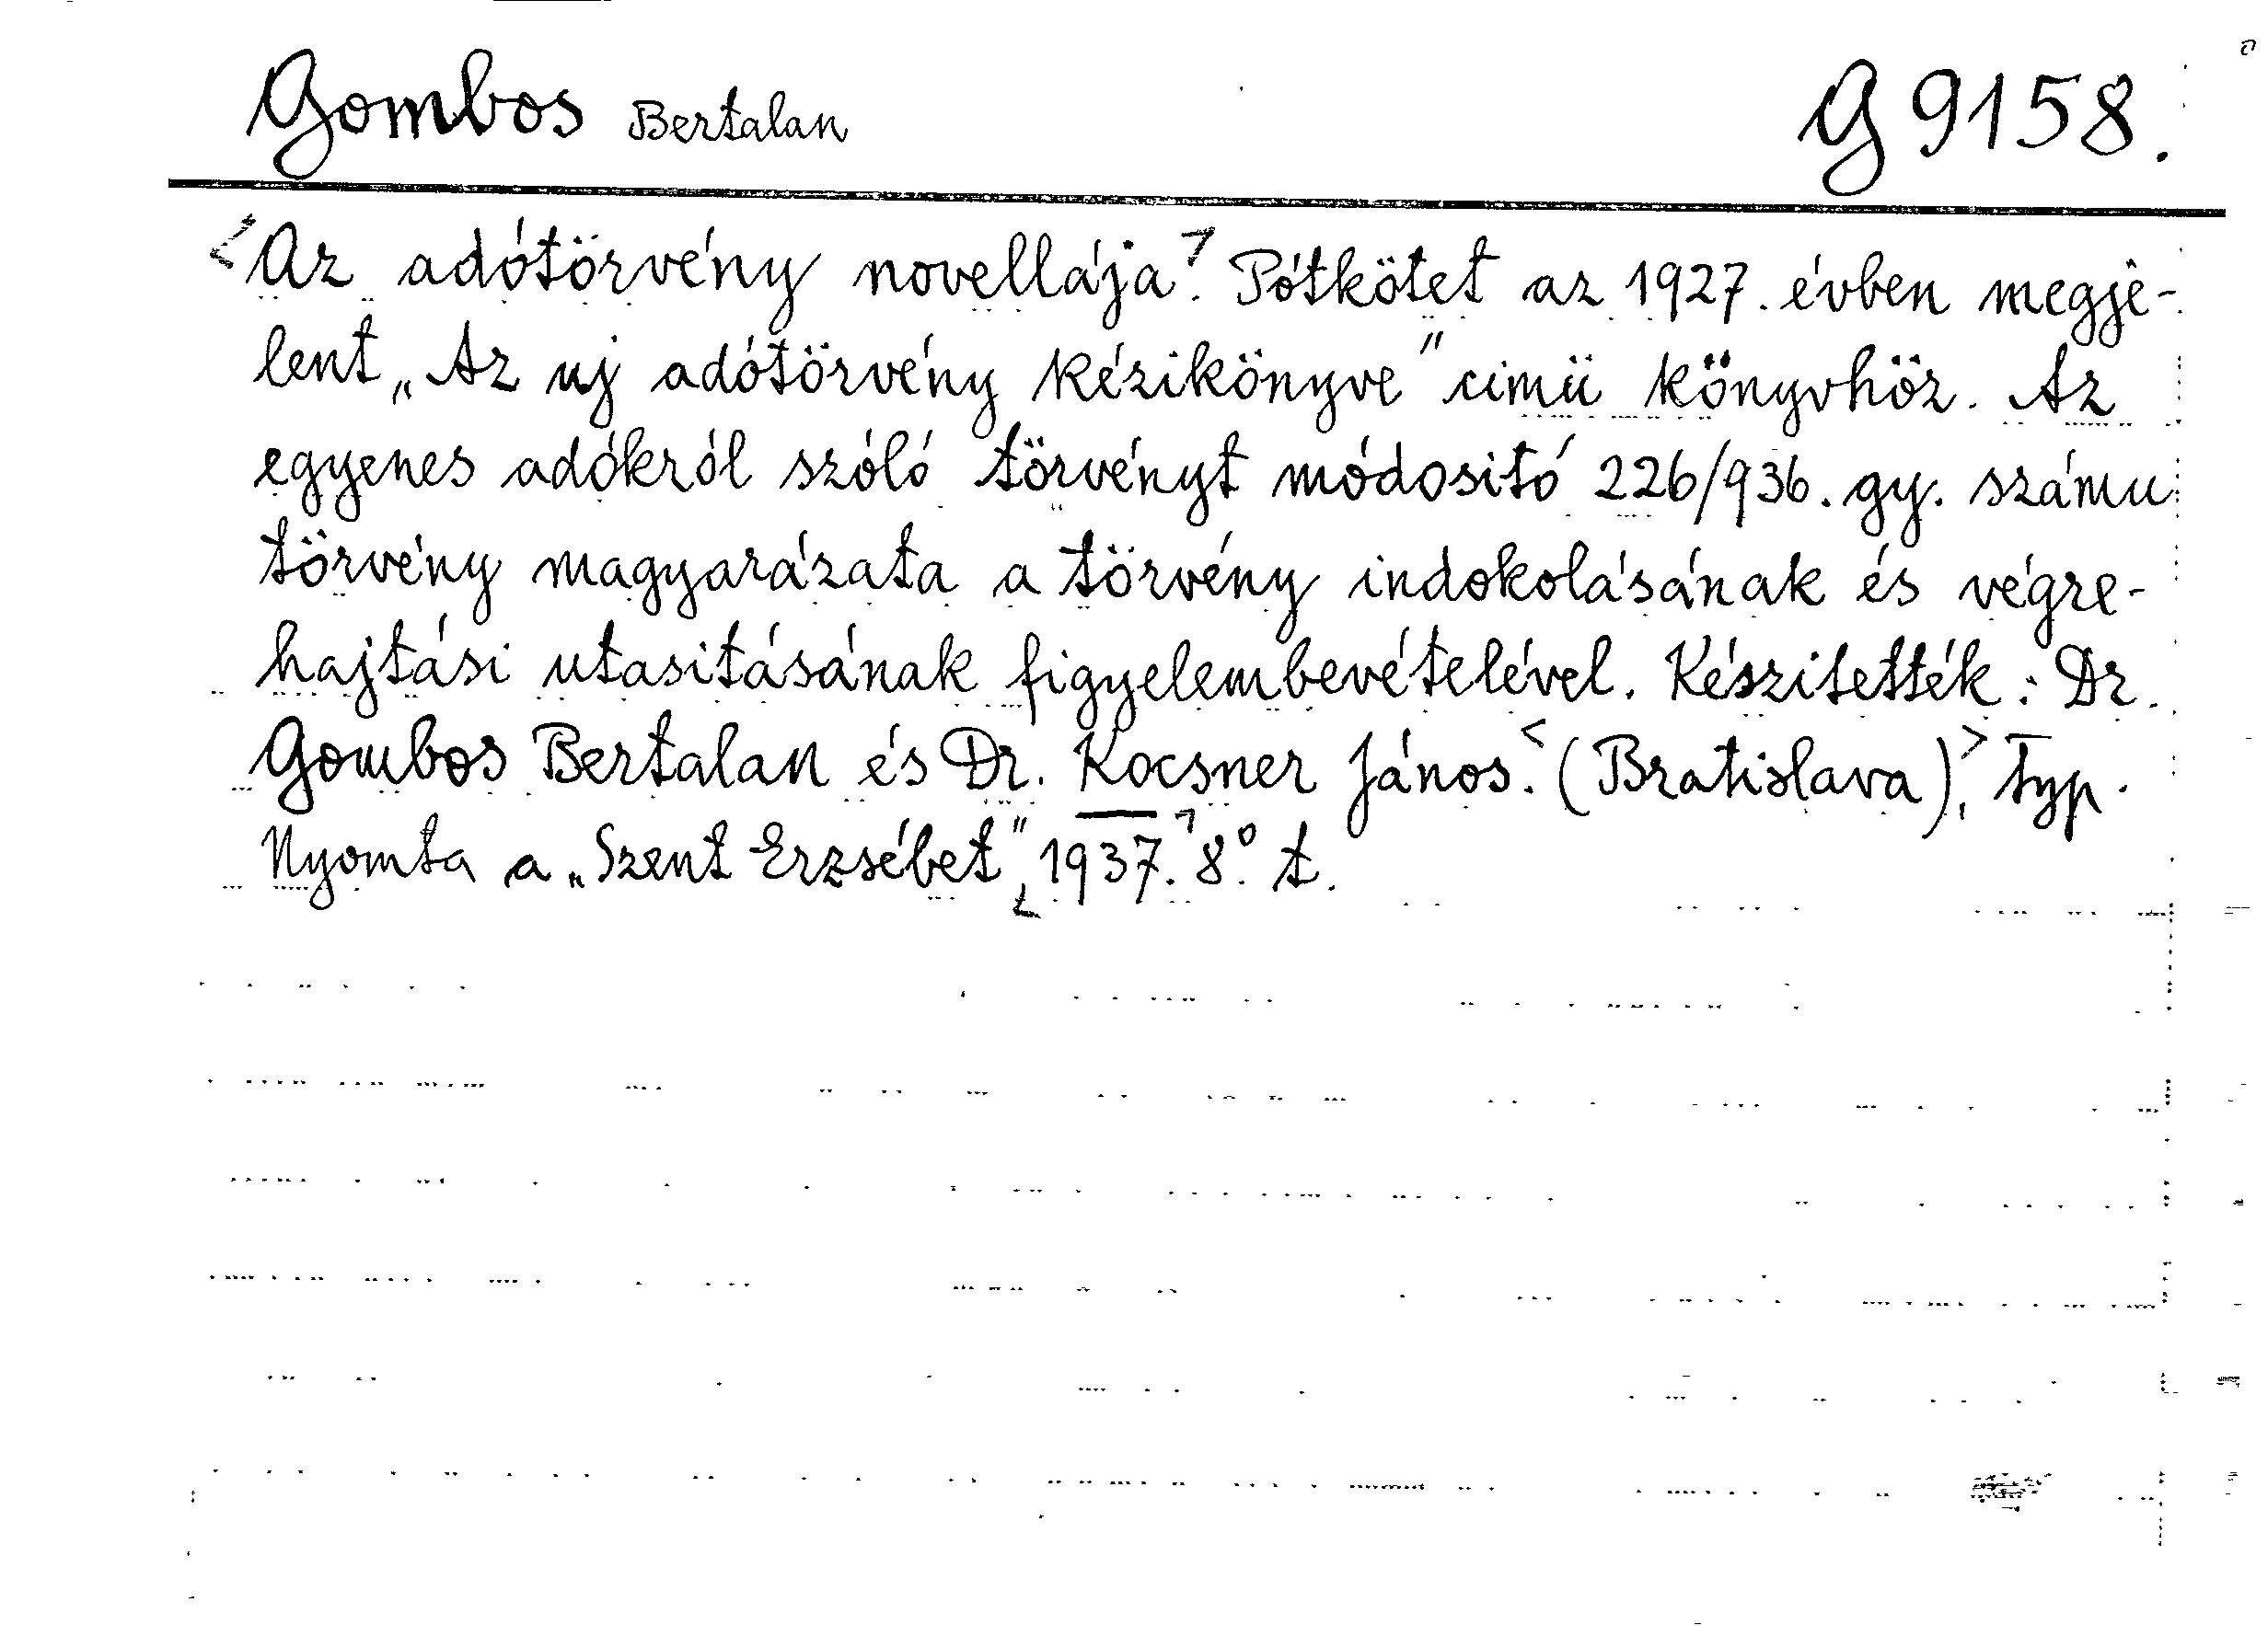 Gombos Bertalan G 9158.
<Az adótörvény novellája.> Pótkötet az 1927. évben megje-
lent „Az uj adótörvény kézikönyve" cimü könyvhöz. Az
egyenes adókról szóló törvényt módositó 226/936. gy. számu
törvény magyarázata a törvény indokolásának és végre-
hajtási utasitásának figyelembevételével. Készitették: Dr.
Gombos Bertalan és Dr. Kocsner János. <(Bratislava),> Typ.
Nyomta a „Szent Erzsébet", <1937.> 8° t.